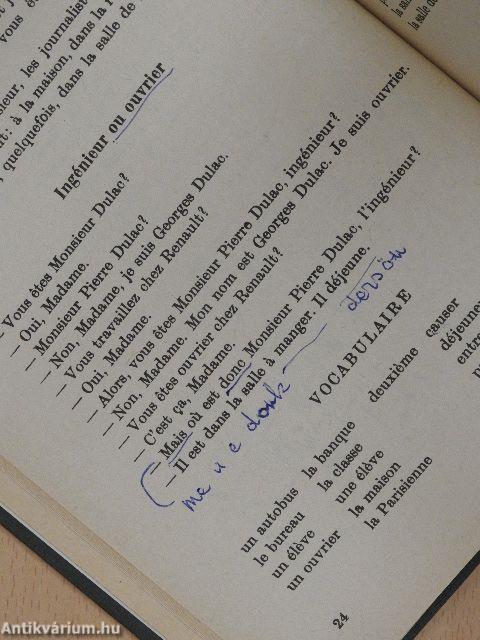 vous ê
sieur, les journalist
ut: à la maison, dans la r
, quelquefois, dans la salle de
la salle de
Ingénieur ou ouvrier
– Vous êtes Monsieur Dulac?
– Oui, Madame.
– Monsieur Pierre Dulac?
– Non, Madame, je suis Georges Dulac.
– Vous travaillez chez Renault?
– Oui, Madame.
– Alors, vous êtes Monsieur Pierre Dulac, ingénieur?
– Non, Madame. Mon nom est Georges Dulac. Je suis ouvrier.
– Vous êtes ouvrier chez Renault?
– C'est ça, Madame.
– Mais où est donc Monsieur Pierre Dulac, l'ingénieur?
– Il est dans la salle à manger. Il déjeune.
VOCABULAIRE
un autobus la banque deuxième causer
le bureau la classe déjeune
un élève une élève entr
un ouvrier la maison
la Parisienne
24
Antikvárium.hu
Antikvárium.hu